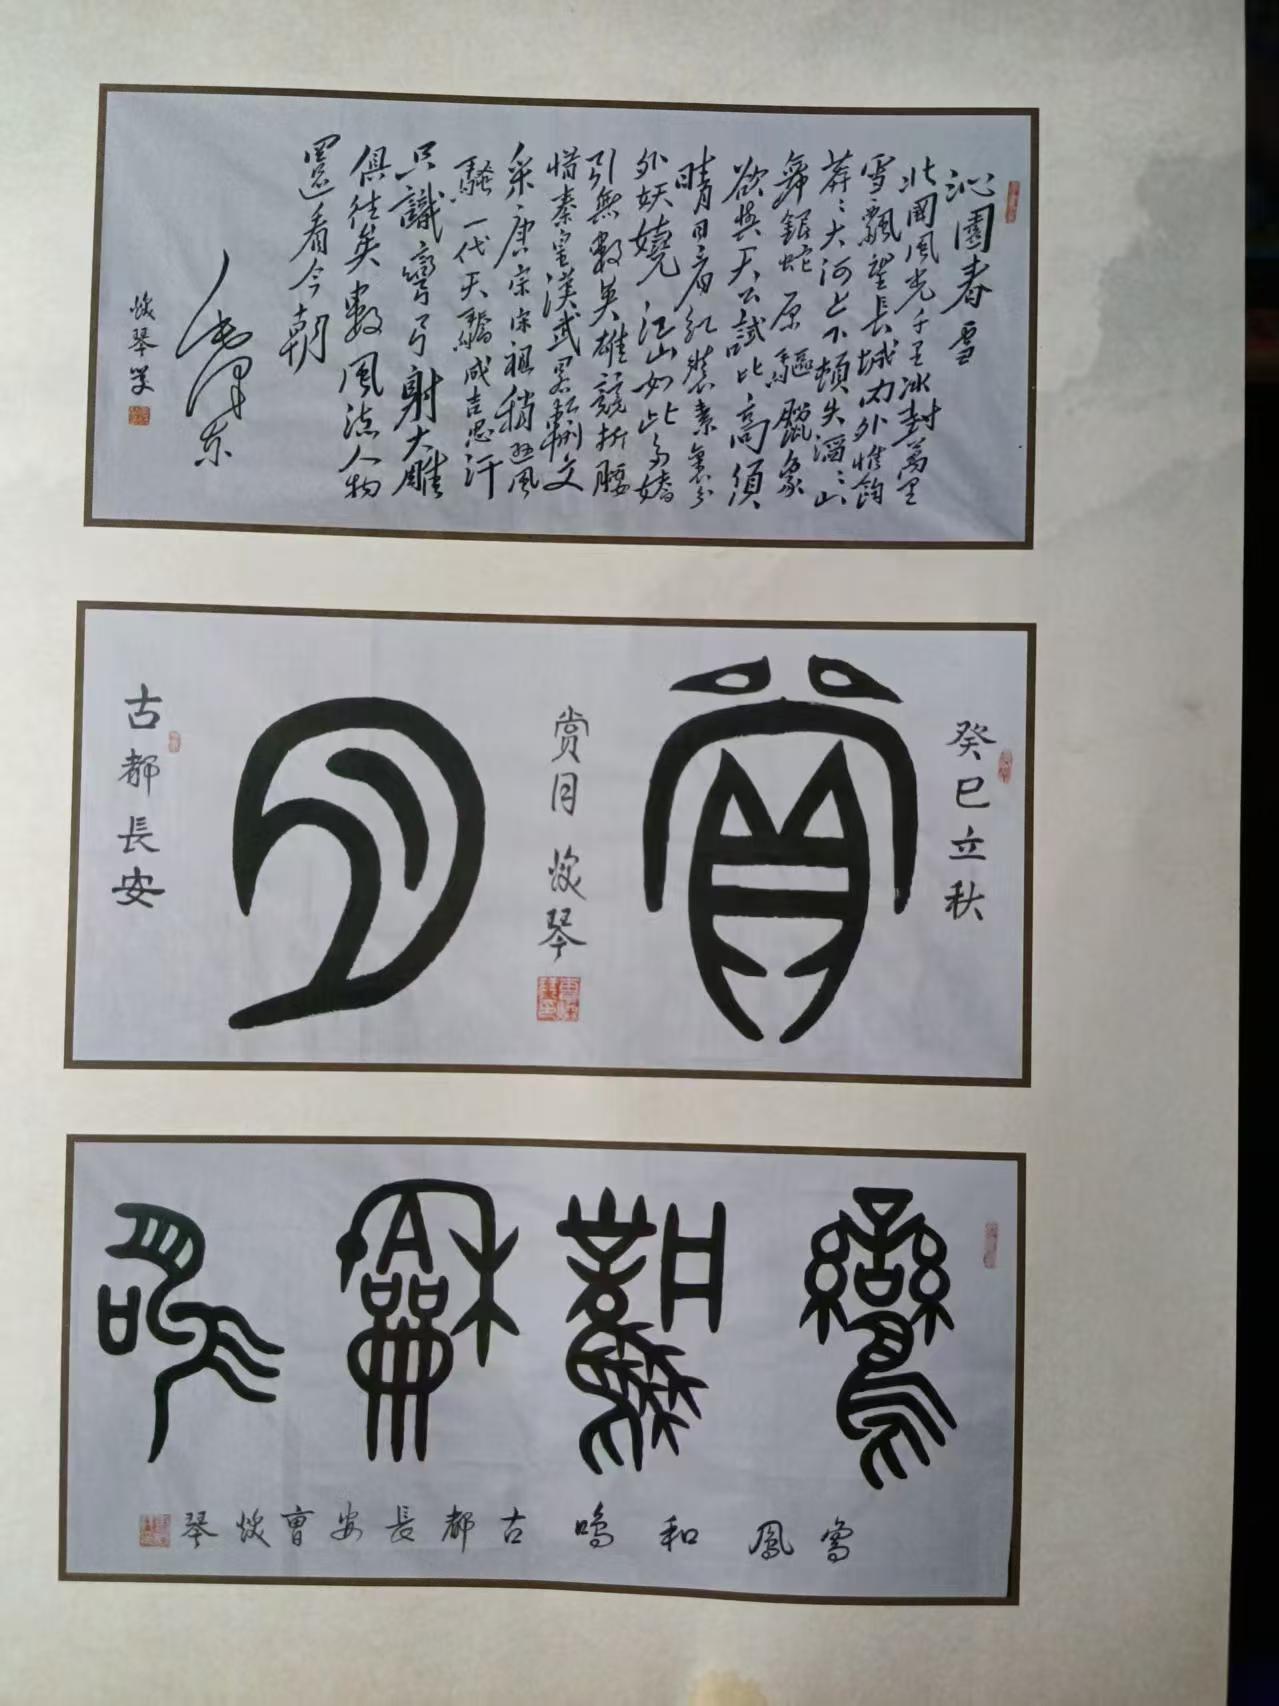 沁園春 雪
北國風光千里冰封萬里
雪飄望長城内外惟餘
莽〻大河上下頓失滔〻山
舞銀蛇原驅臘象
欲與天公試比高須
晴日看紅裝素裹分
外妖嬈江山如此多嬌
引無數英雄競折腰
惜秦皇漢武略輸文
采唐宗宋祖稍遜風
騷一代天驕成吉思汗
只識彎弓射大雕
俱往矣數風流人物
還看今朝
毛澤東
焌琴学
癸巳立秋
賞月
賞月 焌琴
古都長安
鸞鳳和鳴
鸾鳳和鳴 古都長安曹焌琴